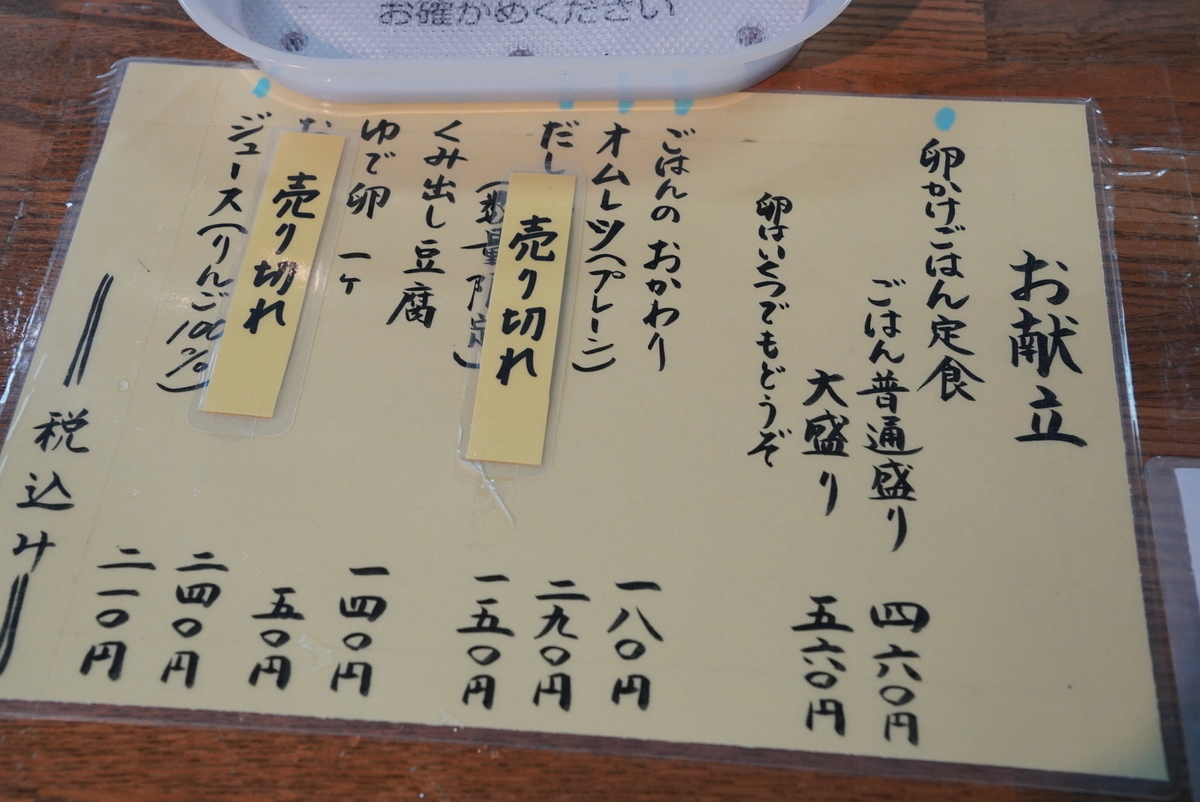 お確かめください
お献立
卵かけごはん定食
ごはん普通盛り 四六〇円
大盛り 五六〇円
卵はいくつでもどうぞ
ごはんのおかわり 一八〇円
オムレツ(プレーン) 二九〇円
だし 一五〇円
売り切れ
(数量限定)
くみ出し豆腐 一四〇円
ゆで卵 一ケ 五〇円
二四〇円
売り切れ
ジュース(りんご100%) 二一〇円
税込み